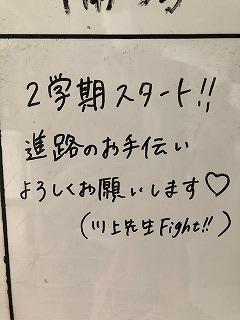 2学期スタート!!
進路のお手伝い
よろしくお願いします♡
(川上先生Fight!!)